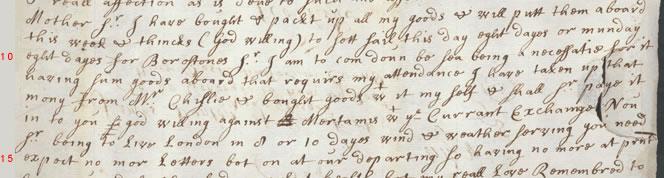 I reall affection as is
Mother Sr. I have bought & packt up all my goods & will putt them aboard
this week & thincks (god willing) to sett sail this day eght dayes or munday
10 eght dayes for Borostones Sr. I am to com doun be sea being a necessatie for it
having sum goods aboard that requirs my attendance I have taken up that
mony from Mr. Chislie & bought goods wt it my self & shall Sr. paye it
in to you god willing against Mertimis wt ye Currant Exchange You need
Sr. being to Live London in 8 or 10 dayes wind & weather serving you
15 expect no mor Letters bot on at our departing so having no more at prnt
my reall Love Remembred to